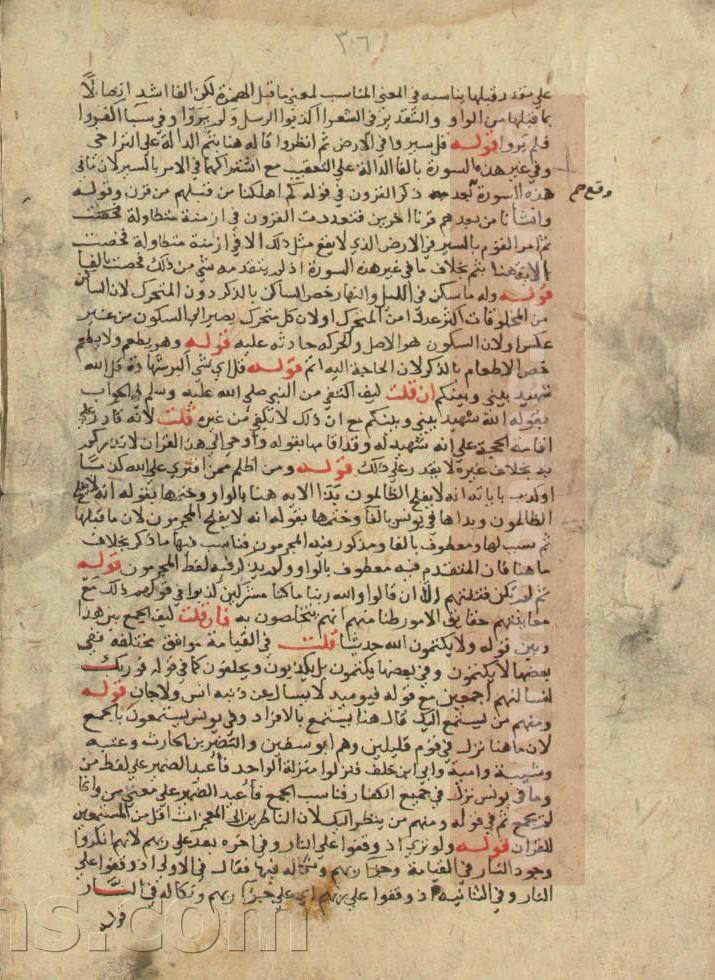 ٣٠٦
على مقدر قبلها يناسبه في المعنى المناسب لمعنى ما قبل الهمزة لكن الفا اشد اتصالا
بما قبلها من الواو والتقدير في الشعرا اكذبوا الرسل ولم يروا وفي سبا اكفروا
فلم يروا قوله قل سيروا في الارض ثم انظروا قاله هنا بثم الدالة على التراخي
وفي غير هذه السورة بالفا الدالة على التعقيب مع اشتراكهما في الامر بالسير لان ما في
هذه السورة بعد ذكر القرون في قوله كم اهلكنا من قبلهم من قرن وقوله
وقع
وانشانا من بعدهم قرنا اخرين فتعددت القرون في ازمنة متطاولة فخصت
ثم امر القوم بالسير في الارض الذي لا يقع مثل ذلك الا في ازمنة متطاولة فخصت
الاية هنا بثم بخلاف ما في غير هذه السورة اذ لم يتقدمه شي من ذلك فخصت بالفا
قوله وله ما سكن في الليل والنهار خص الساكن بالذكر دون المتحرك لان الساكن
من المخلوقات اكثر عددا من المتحرك اولان كل متحرك يصير الى السكون من غير
عكس ولان السكون هو الاصل والحركه حادثه عليه قوله وهو يطعم ولا يطعم
خص الاطعام بالذكر لان الحاجة اليه اتم قوله قل اي شي اكبر شهادة قل الله
شهيد بيني وبينكم ان قلت كيف اكتفي من النبي صلى الله عليه وسلم في الجواب
بقوله الله شهيد بيني وبينكم مع ان ذلك لا يكفي من غيره قلت لانه قادر على
اقامة الحجة على انه شهيد له وقد اقامها بقوله واوحي الي هذا القران لانذركم
به بخلاف غيره لا يقدر على ذلك قوله ومن اظلم ممن افترى على الله كذبا
او كذب باياته انه لا يفلح الظالمون بدا الايه هنا بالواو وختمها بقوله انه لا يفلح
الظالمون وبداها في يونس بالفا وختمها بقوله انه لا يفلح المجرمون لان ما قبلها
ثم سبب لها ومعطوف بالفا ومذكور فيه المجرمون فناسب فيها ما ذكر بخلاف
ما هنا فان المتقدم فيه معطوف بالواو ولم يذكر فيه لفظ المجرمون قوله
ثم لم تكن فتنتهم الا ان قالوا والله ربنا ما كنا مشركين كذبوا في قولهم ذلك مع
معاينتهم حقايق الامور ظنا منهم انهم يتخلصون به فان قلت كيف الجمع بين هذا
وبين قوله ولا يكتمون الله حديثا قلت في القيامة مواقف مختلفه ففي
بعضها لا يكتمون وفي بعضها يكتمون بل يكذبون ويحلفون كما في قوله فوربك
لنسالنهم اجمعين مع قوله فيوميذ لا يسال عن ذنبه انس ولا جان قوله
ومنهم من يستمع اليك قال هنا يستمع بالافراد وفي يونس يستمعون بالجمع
لان ما هنا نزل في قوم قليلين وهم ابو سفين والنضر بن الحارث وعتبه
وشيبة وامية وابي ابن خلف فنزلوا منزلة الواحد فاعيد الضمير على لفظ من
وما في يونس نزل في جميع الكفار فناسب الجمع فاعيد الضمير على معنى من وانما
لم يجمع ثم في قوله ومنهم من ينظر اليك لان الناظرين الى المعجزات اقل من المستمعين
للقران قوله ولو ترى اذ وقفوا على النار وفي اخره بعد على ربهم لانهم انكروا
وجود النار في القيامة وجزا ربهم ونكاله فيها فقال في الاولى اذ وقفوا على
النار وفي الثانيه اذ وقفوا على ربهم اي على جزا ربهم ونكاله في النار
قوله
ns.com